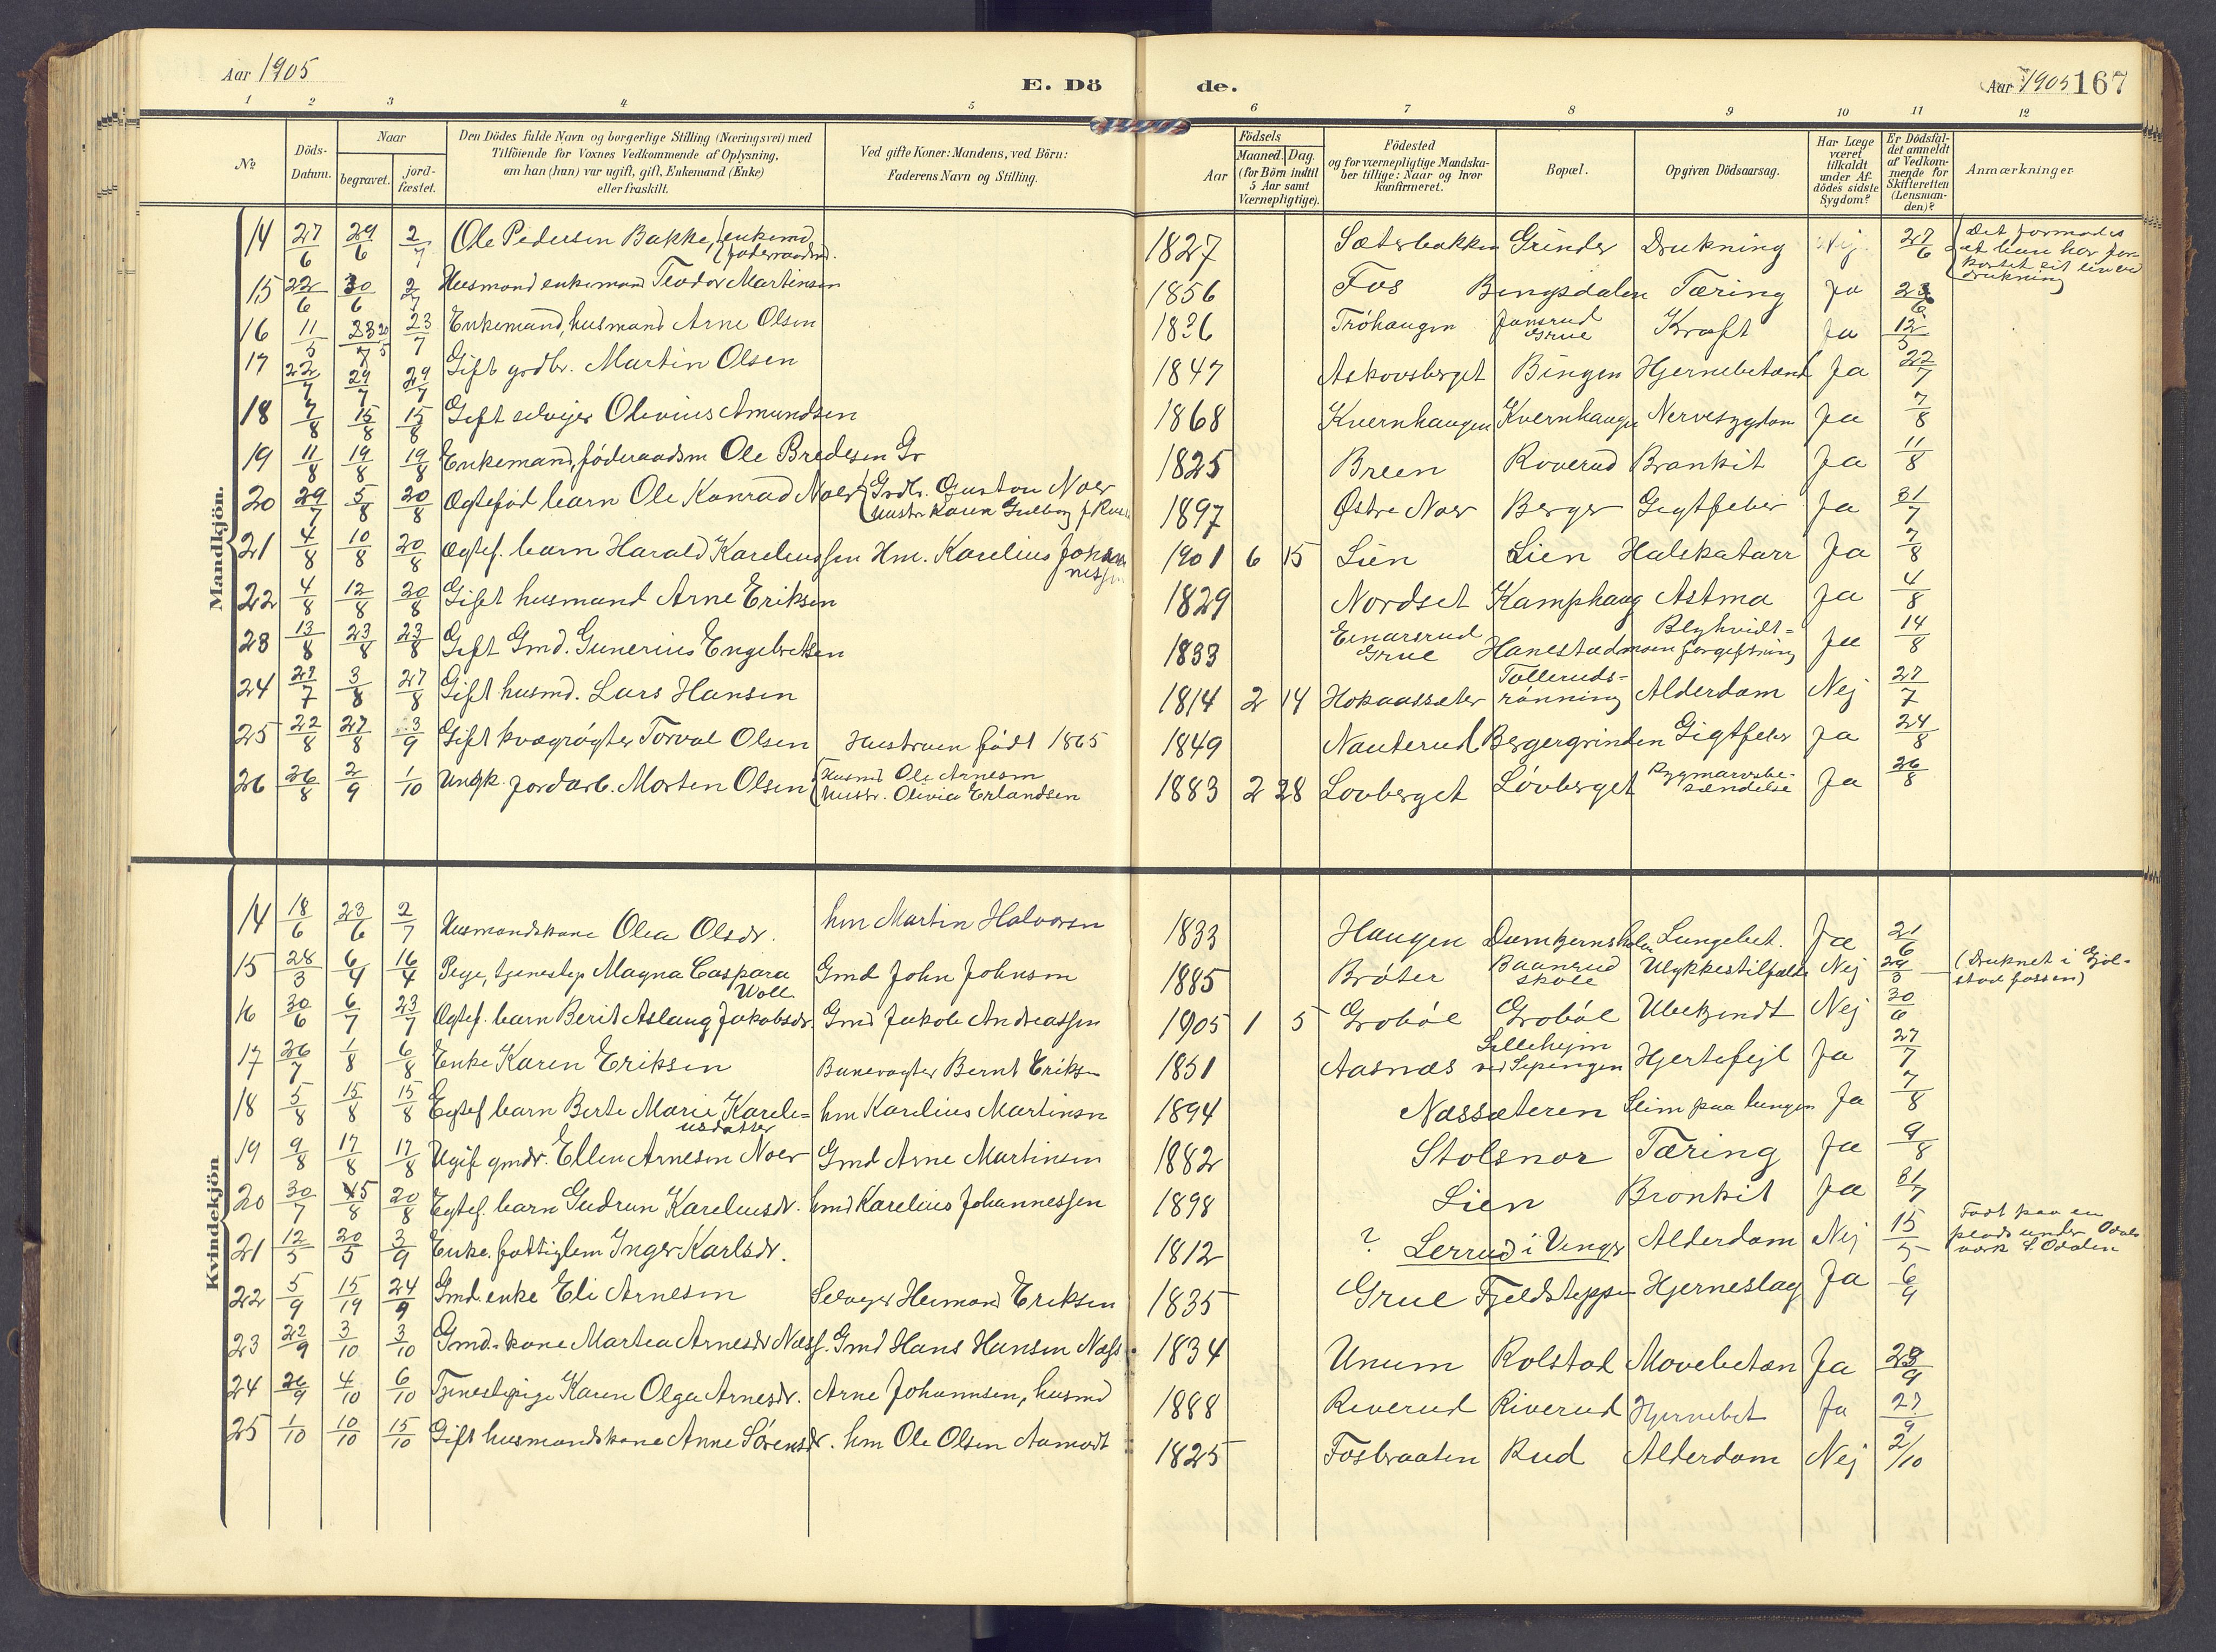 Aar 1905 E. Dö de. Aar 1905 167
1 2 3 4 5 6 7 8 9 10 11 12
No. Döds-Datum. Naar begravet. jordfæstet. Den Dödes fulde Navn og borgerlige Stilling (Næringsvei) med Tilföiende for Voxnes Vedkommende af Oplysning, om han (hun) var ugift, gift, Enkemand (Enke) eller fraskilt. Ved gifte Koner: Mandens, ved Börn: Faderens Navn og Stilling. Aar Födsels Maaned. Dag. (for Börn indtil 5 Aar samt Værnepligtige). Födested og for værnepligtige Mandskaber tillige: Naar og hvor konfirmeret. Bopæl. Opgiven Dödsaarsag. Har Læge været tilkaldt under Afdödes sidste Sygdom? Er Dödsfaldet anmeldt af Vedkommende for Skifteretten (Lensmanden)? Anmærkninger.
Mandkjön.
14 27/6 29/6 2/7 Ole Pedersen Bakke, enkemd føderaadsmd. 1827 Sæterbakken Grinder Drukning Nej 27/6 Det formodes at han har forkortet sit liv ved drukning
15 22/6 30/6 2/7 Husmand enkemand Teodor Martinsen 1856 Fos Bingsdalen Tæring Ja 23/6
16 11/5 23/7 20/5 23/7 Enkemand, husmand Arne Olsen 1836 Tröhaugen Jansrud Grue Kræft Ja 12/5
17 22/7 29/7 29/7 Gift grdbr. Martin Olsen 1847 Askovsberget Bingen Hjernebetænd Ja 22/7
18 7/8 15/8 15/8 Gift selvejer Olivius Amundsen 1868 Kvernhaugen Kvernhaugen Nervesygdom Ja 7/8
19 11/8 19/8 19/8 Enkemand, föderaadsm Ole Bredesen Gr 1825 Breen Roverud Bronkit Ja 11/8
20 29/7 5/8 20/8 Ægtefød barn Ole Konrad Noer Grdbr. Gustav Noer Hustr Karen Gulborg f. 1897 Østre Noer Berger Gigtfeber Ja 31/7
21 4/8 10/8 20/8 Ægtef. barn Harald Kareliussen Hm. Karelius Johannessen 1901 6 15 Lien Lien Halskatarr Ja 7/8
22 4/8 12/8 20/8 Gift husmand Arne Eriksen 1829 Nordset Kamphaug Astma Ja 4/8
23 13/8 23/8 23/8 Gift Gmd. Gunerius Engebretsen 1833 Einarsrud Grue Hanestadmoen Blyhvidt=forgiftning Ja 14/8
24 27/7 3/8 27/8 Gift husmd. Lars Hansen 1814 2 14 Hokaassæter Tolleruds-rönning Alderdom Nej 27/7
25 22/8 27/8 3/9 Gift kvægrögter Torval Olsen Hustruen født 1865 1849 Nauterud Bergergrinden Gigtfeber Ja 24/8
26 26/8 2/9 1/10 Ungk. jordarb. Morten Olsen Husmd Ole Arnesen Hustr. Olivia Erlandsen 1883 2 28 Lovberget Lövberget Rygmarvsbe-tændelse Ja 26/8
Kvindekjön
14 18/6 23/6 2/7 Husmandskone Olea Olsdr. hm Martin Halvorsen 1833 Haugen Lungebet. Ja 21/6
15 28/3 6/4 16/4 Pige, tjenestep Magna Caspara Woll Gmd John Johnsen 1885 Bröter Baanrud skole Ulykkestilfælde Nej 29/3 (Druknet i Gjölstadfossen)
16 30/6 6/7 23/7 Ægtef. barn Berit Aslaug Jakobsdr. Gmd Jakob Andreassen 1905 1 5 Grobøl Grobøl Ubekjendt Nej 30/6
17 26/7 1/8 6/8 Enke Karen Eriksen Banevogter Bernt Eriksen 1851 Aasnæs Lilleheim ved Sepingen Hjertefejl Ja 27/7
18 5/8 15/8 15/8 Egtef barn Berte Marie Kareliusdatter hm Karelius Martinsen 1894 Næssæteren Slim paa lungen Ja 7/8
19 9/8 17/8 17/8 Ugif gmdr. Ellen Arnesen Noer Gmd Arne Martinsen 1882 Stolsnor Tæring Ja 9/8
20 30/7 5/8 20/8 Egtef. barn Gudrun Kareliusdr. hmd Karelius Johannessen 1898 Lien Bronkit Ja 31/7
21 12/5 20/5 3/9 Enke. fattiglem Inger Karlsdr. 1812 ? Lerrud i Vinger Alderdom Nej 15/5 Født paa en plads under Odals verk S. Odalen
22 5/9 15/19 24/9 Gmd. enke Eli Arnesen Selvejer Hermand Eriksen 1835 Grue Fjeldsteppen Hjerneslag Ja 6/9
23 22/9 3/10 3/10 Gmd.-kone Martea Arnesdr Næss. Gmd Hans Hansen Næss 1834 Unum Kolstad Mavebetæn Ja 23/9
24 26/9 4/10 6/10 Tjenestepige Karen Olga Arnesdr. Arne Johannsen, husmd 1888 Riverud Riverud Hjernebet Ja 27/9
25 1/10 10/10 15/10 Gift husmandskone Anne Sörensdr. hm Ole Olsen Aamodt 1825 Fosbraaten Rud Alderdom Nej 2/10